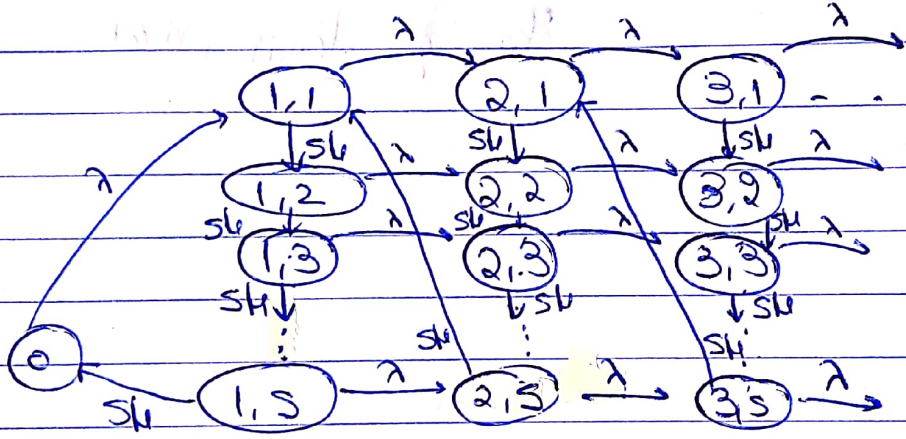 λ λ λ
1,1 2,1 3,1 - -
Sμ λ Sμ λ Sμ λ
λ
1,2 2,2 3,2
Sμ λ Sμ λ Sμ λ
1,3 2,3 3,3
Sμ Sμ Sμ
⋮ Sμ ⋮ Sμ ⋮
0
λ λ λ
Sμ 1,S 2,S 3,S